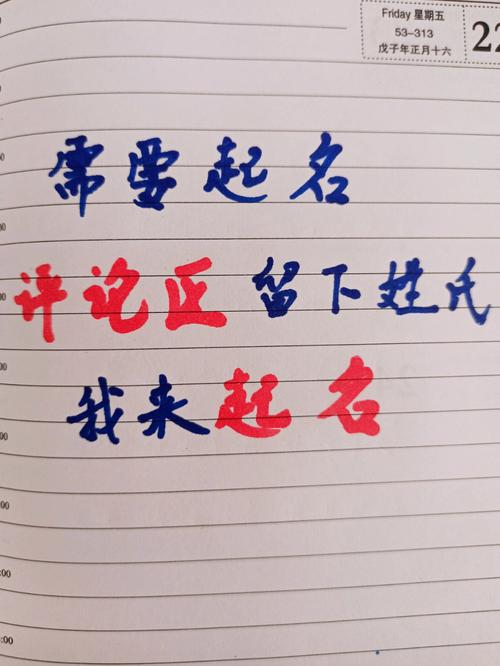 Friday 星期五
53-313
戊子年正月十六
22
需要起名
评论区 留下姓氏
我来起名